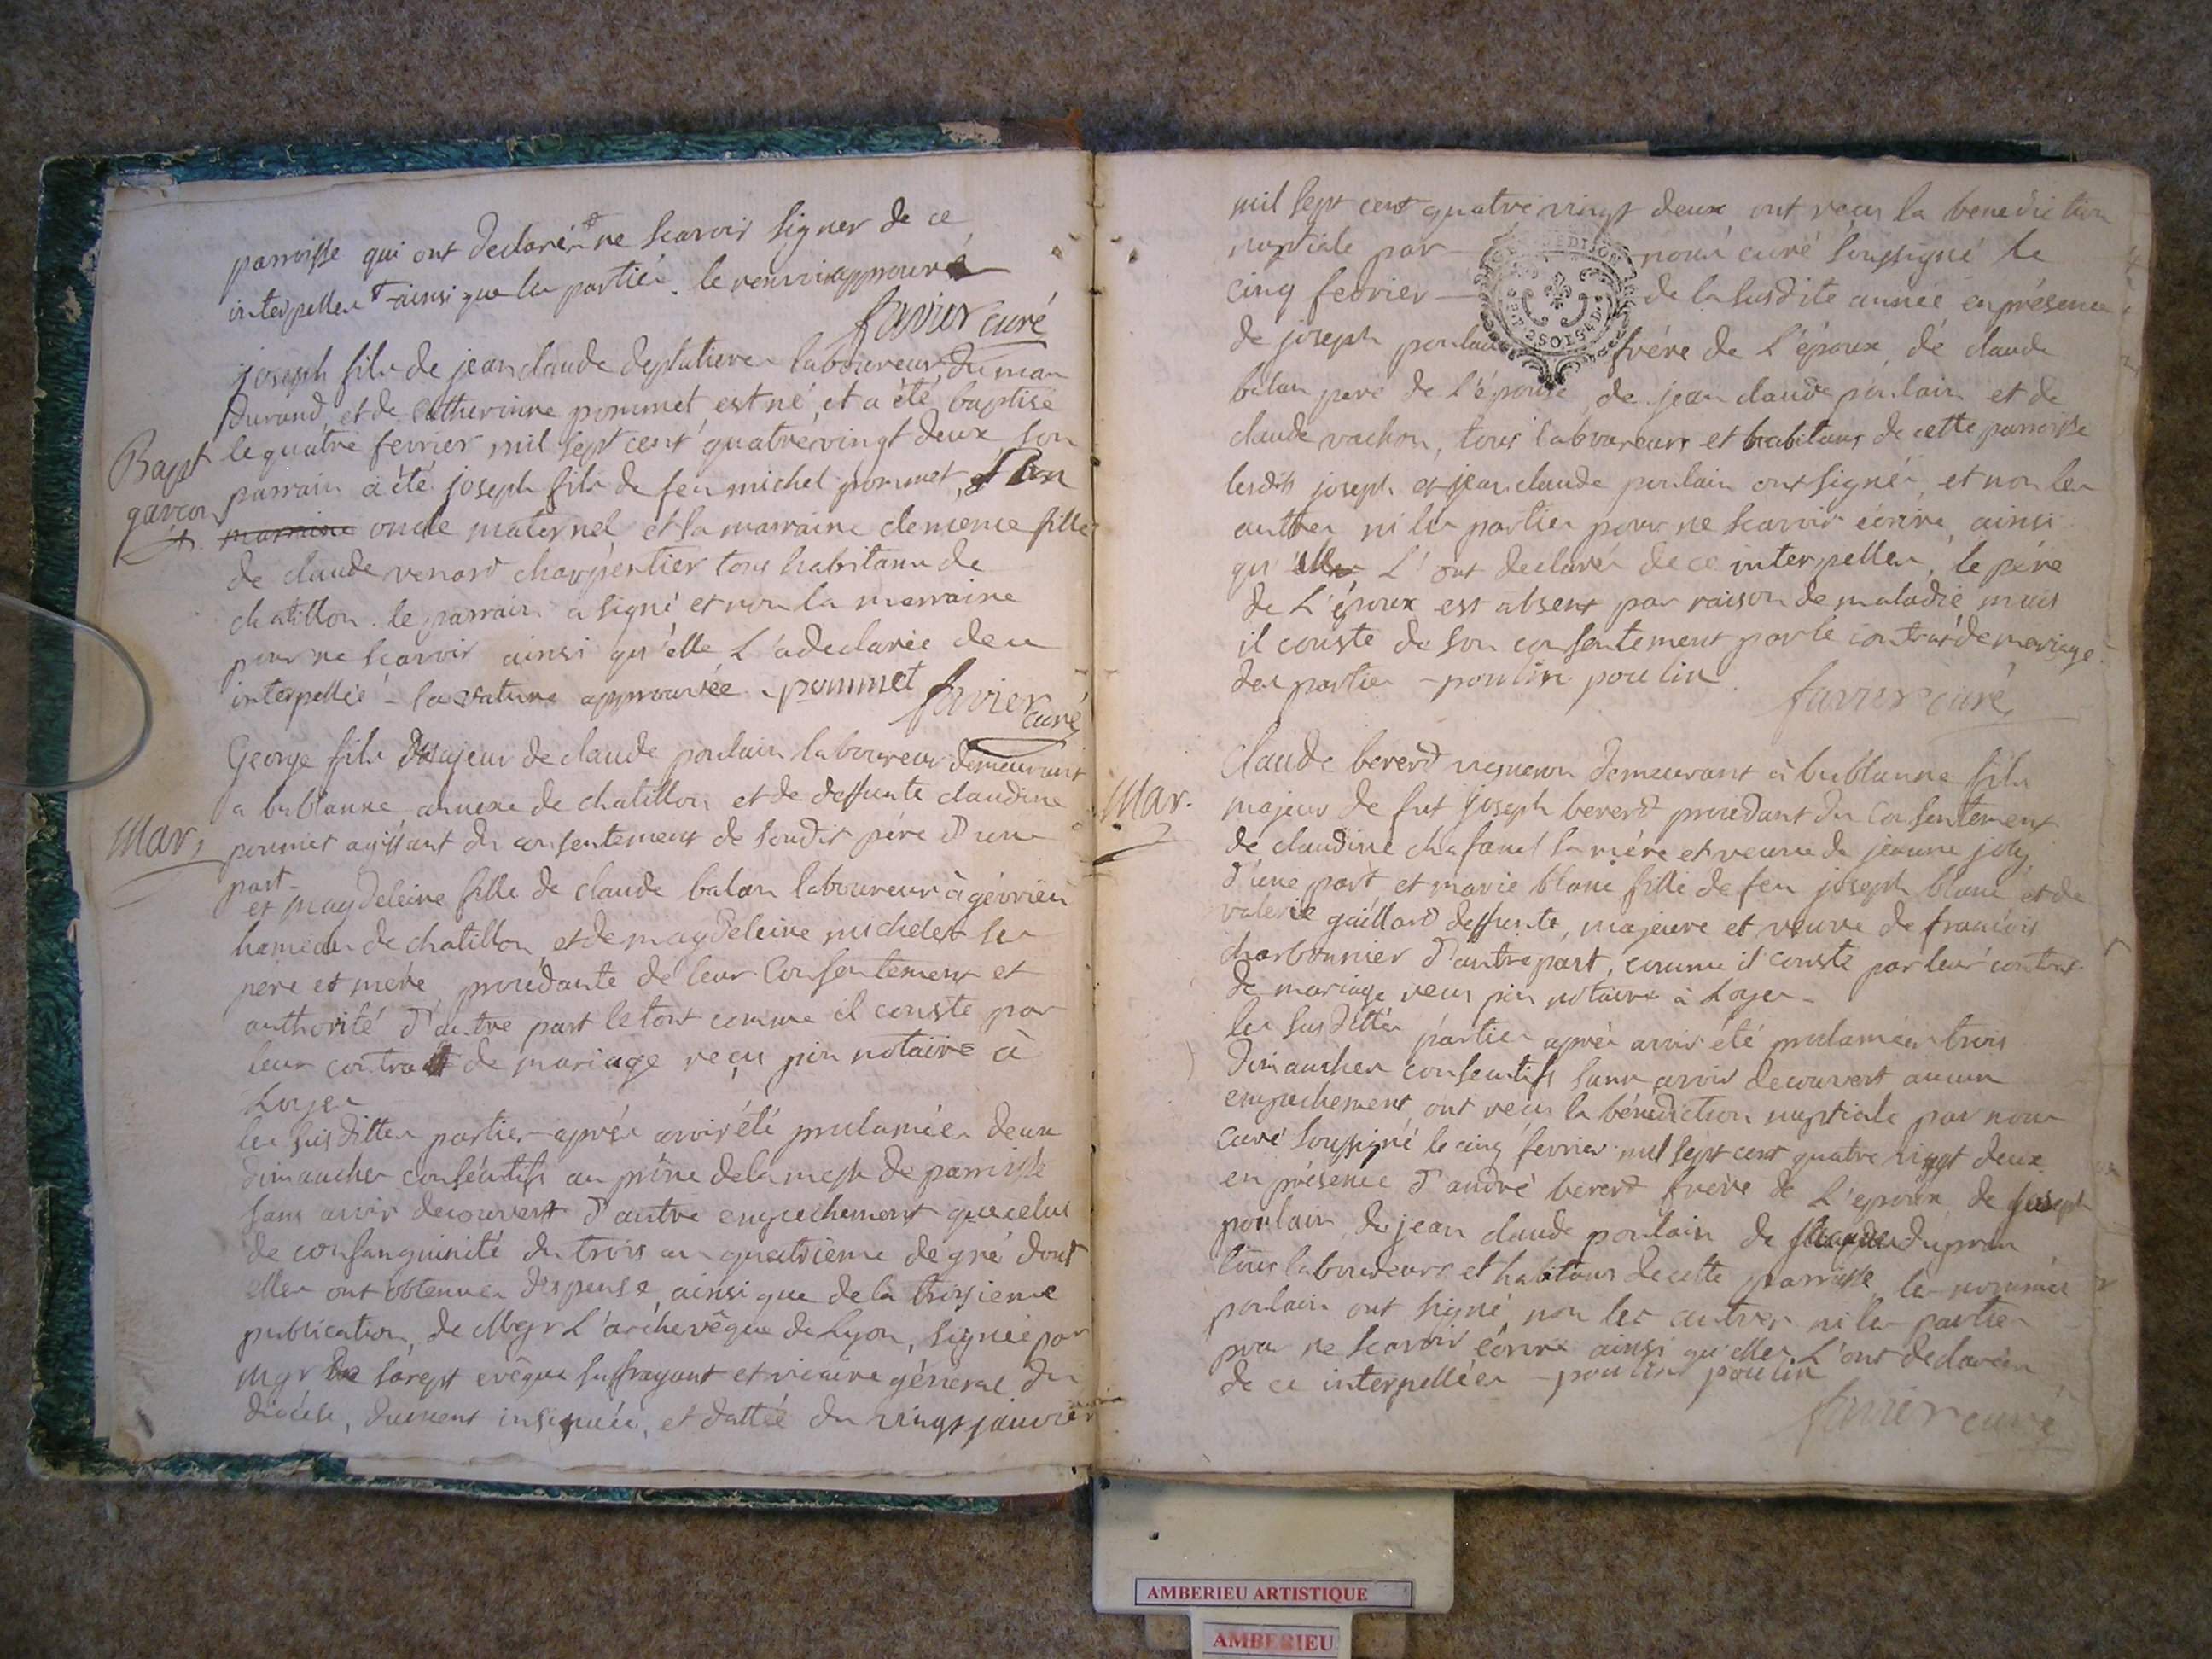 parroisse qui ont declarés ne scavoir signer de ce
interpelles ainsi que les parties. le renvoi approuvé
favier curé
joseph fils de jean claude desplatieres laboureur du mas
durand et de catherinne pommet est né et a été baptisé
Bapt le quatre fevrier mil sept cent quatrévingt deux son
garcon parrain a été joseph fils de feu michel pommet, son
marraine oncle maternel et la marraine clemence fille
de claude venard charpentier tous habitans de
chatillon. le parrain a signé et non la marraine
pour ne scavoir ainsi qu'elle l'a declarée de ce
interpellée - la rature approuvée - pommet favier
curé
George fils majeur de claude poulain laboureur demeurant
a bublanne annexe de chatillon et de deffunte claudine
Mar, pommet agissant du consentement de sondit pére d'une
part
et magdeleine fille de claude balan laboureur à gévrieu
hameau de chatillon et de magdeleine michelet ses
pére et mére procédante de leur consentement et
authorité d'autre part le tout comme il conste par
leur contrat de mariage reçu pin notaire à
Loyes
les susdittes parties aprés avoir été proclamées deux
dimanches consécutifs au prône de la messe de parroisse
sans avoir decouvert d'autre empechement que celui
de consanguinité du trois au quatriéme degré dont
elles ont obtenues dispense, ainsi que de la troisieme
publication, de Mgr L'archevêque de Lyon, signée par
mgr de sarept evêque suffragant et vicaire général du
diocése, dument insinuée, et dattée du vingt janvier
mil sept cent quatre vingt deux ont reçu la benediction
nuptiale par nous curé soussigné le
cinq fevrier de la susdite année en présence
de joseph poulain frére de L'époux, de claude
balan pere de l'épouse, de jean claude poulain et de
claude vachon, tous laboureurs et habitans de cette parroisse
lesdits joseph et jean claude poulain ont signés, et non les
autres ni les parties pour ne scavoir écrire, ainsi
qu'elles L'ont declarés de ce interpelles, le pére
de L'époux est absent par raison de maladie mais
il conste de son consentement par le contrat de mariage
des parties - poulin poulin
favier curé
Claude bererd vigneron demeurant à bublanne fils
Mar. majeur de fut joseph bererd procédant du consentement
de claudine chafanel sa mére et veuve de jeanne joly
d'une part et marie blanc fille de feu joseph blanc et de
valerie gaillard deffunte, majeure et veuve de francois
charbonnier d'autre part, comme il conste par leur contrat
de mariage reçu pin notaire à Loyes -
les susdittes parties aprés avoir été proclamées trois
dimanches consecutifs sans avoir decouvert aucun
empechement, ont recu la bénediction nuptiale par nous
curé soussigné le cinq fevrier mil sept cent quatre vingt deux
en présence d'andré bererd frére de L'epoux, de joseph
poulain, de jean claude poulain de dupran
tous laboureurs et habitans de cette parroisse, les nommés
poulain ont signé, non les autres ni les parties
pour ne scavoir écrire ainsi qu'elles L'ont declarées
de ce interpellées - poulin poulin
favier curé
AMBERIEU ARTISTIQUE
AMBERIEU